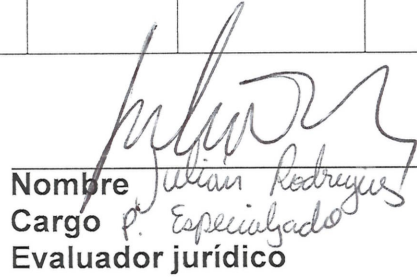 Nombre Julian Rodrigues
Cargo P. Especializado
Evaluador jurídico